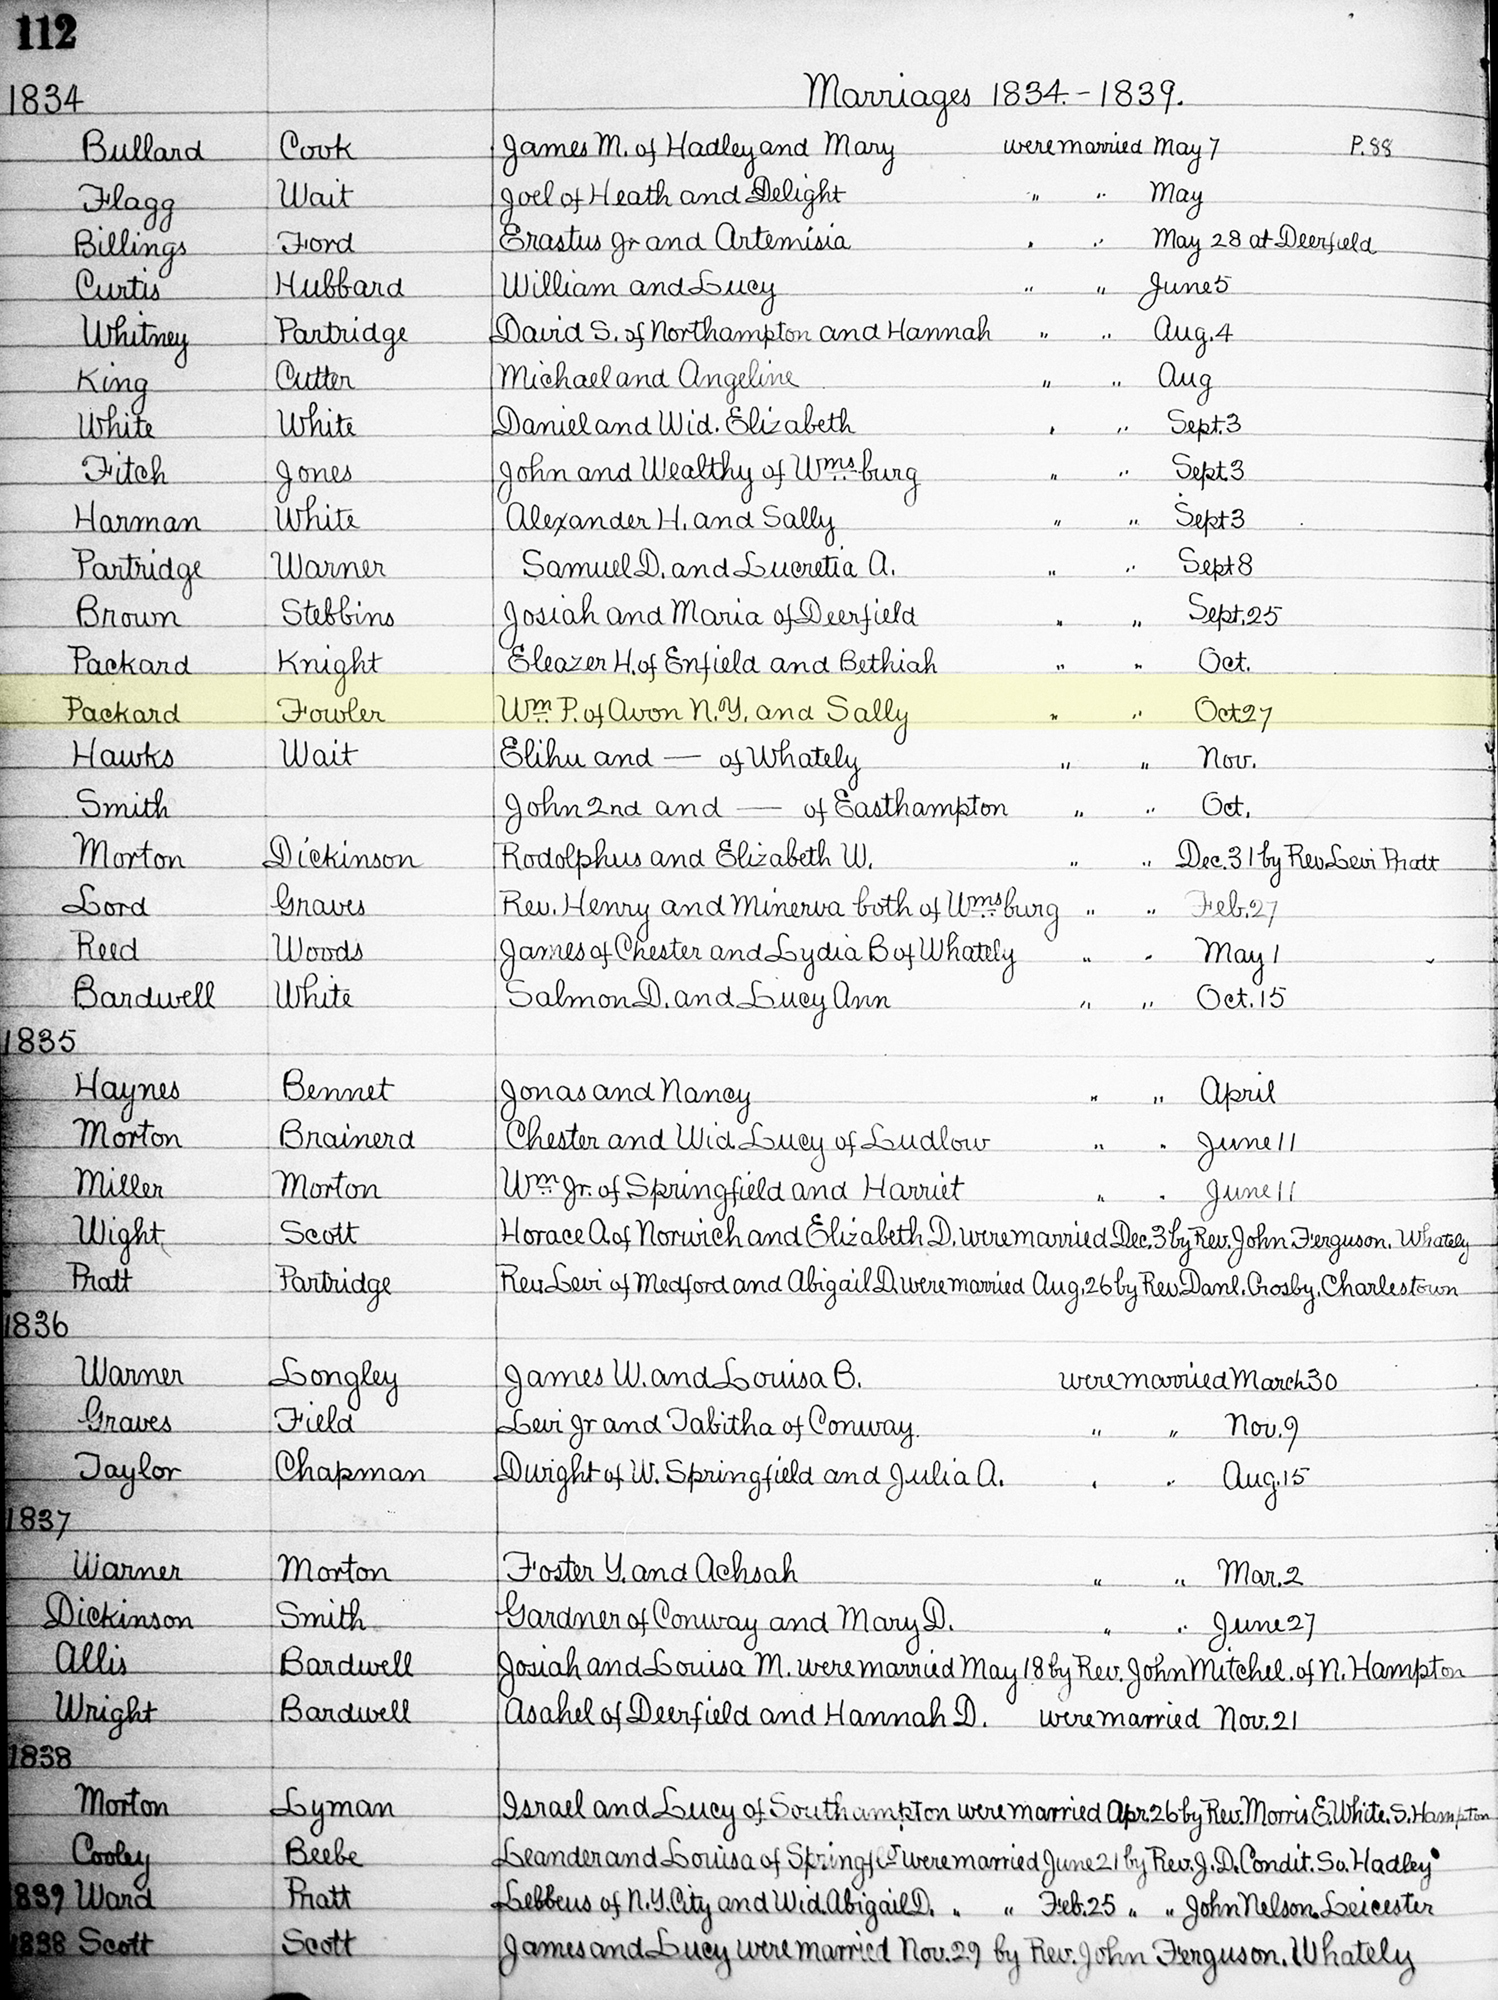 112
1834 Marriages 1834.-1839.
Bullard Cook James M. of Hadley and Mary were married May 7 P. 88
Flagg Wait Joel of Heath and Delight " " May
Billings Ford Erastus Jr and Artemisia " " May 28 at Deerfield
Curtis Hubbard William and Lucy " " June 5
Whitney Partridge David S. of Northampton and Hannah " " Aug. 4
King Cutter Michael and Angeline " " Aug
White White Daniel and Wid. Elizabeth " " Sept. 3
Fitch Jones John and Wealthy of Wmsburg " " Sept 3
Harman White Alexander H. and Sally " " Sept 3
Partridge Warner Samuel D. and Lucretia A. " " Sept 8
Brown Stebbins Josiah and Maria of Deerfield " " Sept. 25
Packard Knight Eleazer H. of Enfield and Bethiah " " Oct.
Packard Fowler Wm P. of Avon N.Y. and Sally " " Oct 27
Hawks Wait Elihu and — of Whately " " Nov.
Smith John 2nd and — of Easthampton " " Oct.
Morton Dickinson Rodolphus and Elizabeth W. " " Dec. 31 by Rev Levi Pratt
Lord Graves Rev. Henry and Minerva both of Wmsburg " " Feb. 27
Reed Woods James of Chester and Lydia B of Whately " " May 1
Bardwell White Salmon D. and Lucy Ann " " Oct. 15
1835
Haynes Bennet Jonas and Nancy " " April
Morton Brainerd Chester and Wid Lucy of Ludlow " " June 11
Miller Morton Wm Jr. of Springfield and Harriet " " June 11
Wight Scott Horace A. of Norwich and Elizabeth D. were married Dec. 3 by Rev. John Ferguson. Whately
Pratt Partridge Rev. Levi of Medford and Abigail D. were married Aug. 26 by Rev. Danl. Crosby. Charlestown
1836
Warner Longley James W. and Louisa B. were married March 30
Graves Field Levi Jr and Tabitha of Conway. " " Nov. 9
Taylor Chapman Dwight of W. Springfield and Julia A. " " Aug. 15
1837
Warner Morton Foster Y. and Achsah " " Mar. 2
Dickinson Smith Gardner of Conway and Mary D. " " June 27
Allis Bardwell Josiah and Louisa M. were married May 18 by Rev. John Mitchel. of N. Hampton
Wright Bardwell Asahel of Deerfield and Hannah D. were married Nov. 21
1838
Morton Lyman Israel and Lucy of Southampton were married Apr. 26 by Rev. Morris E. White. S. Hampton
Cooley Beebe Leander and Louisa of Springfd were married June 21 by Rev. J. D. Condit. So. Hadley
1839 Ward Pratt Lebbeus of N.Y. City and Wid. Abigail D. " " Feb. 25 " " John Nelson. Leicester
1838 Scott Scott James and Lucy were married Nov. 29 by Rev. John Ferguson. Whately